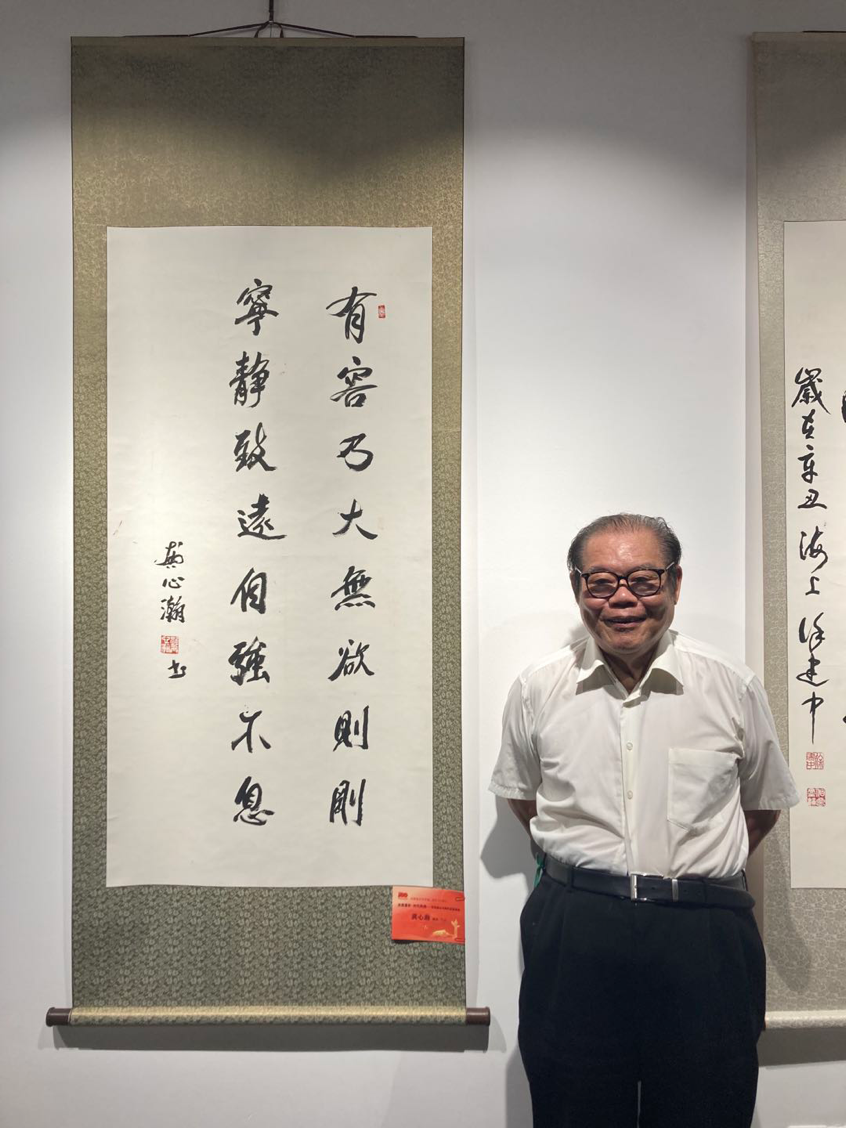 有容乃大無欲則剛
寧靜致遠自強不息
龚心瀚
书
龚心瀚
歲在辛丑海上徐建中